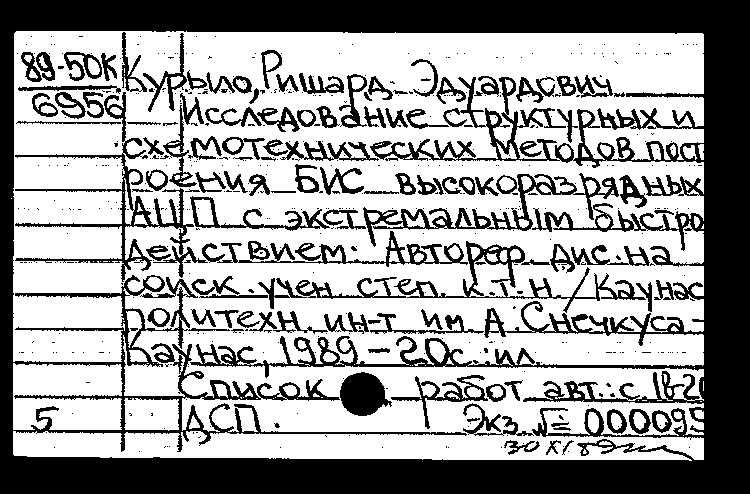 89-50К
6956
Курыло, Ришард Эдуардович
Исследование структурных и
схемотехнических методов пост
роения БИС высокоразрядных
АЦП с экстремальным быстро
действием: Автореф. дис. на
соиск. учен. степ. к.т.н. / Каунас
политехн. ин-т им. А. Снечкуса -
Каунас, 1989. - 20с.: ил.
Список работ авт.: с. 18-20
5 ДСП. Экз. № 000095
30 XI 89